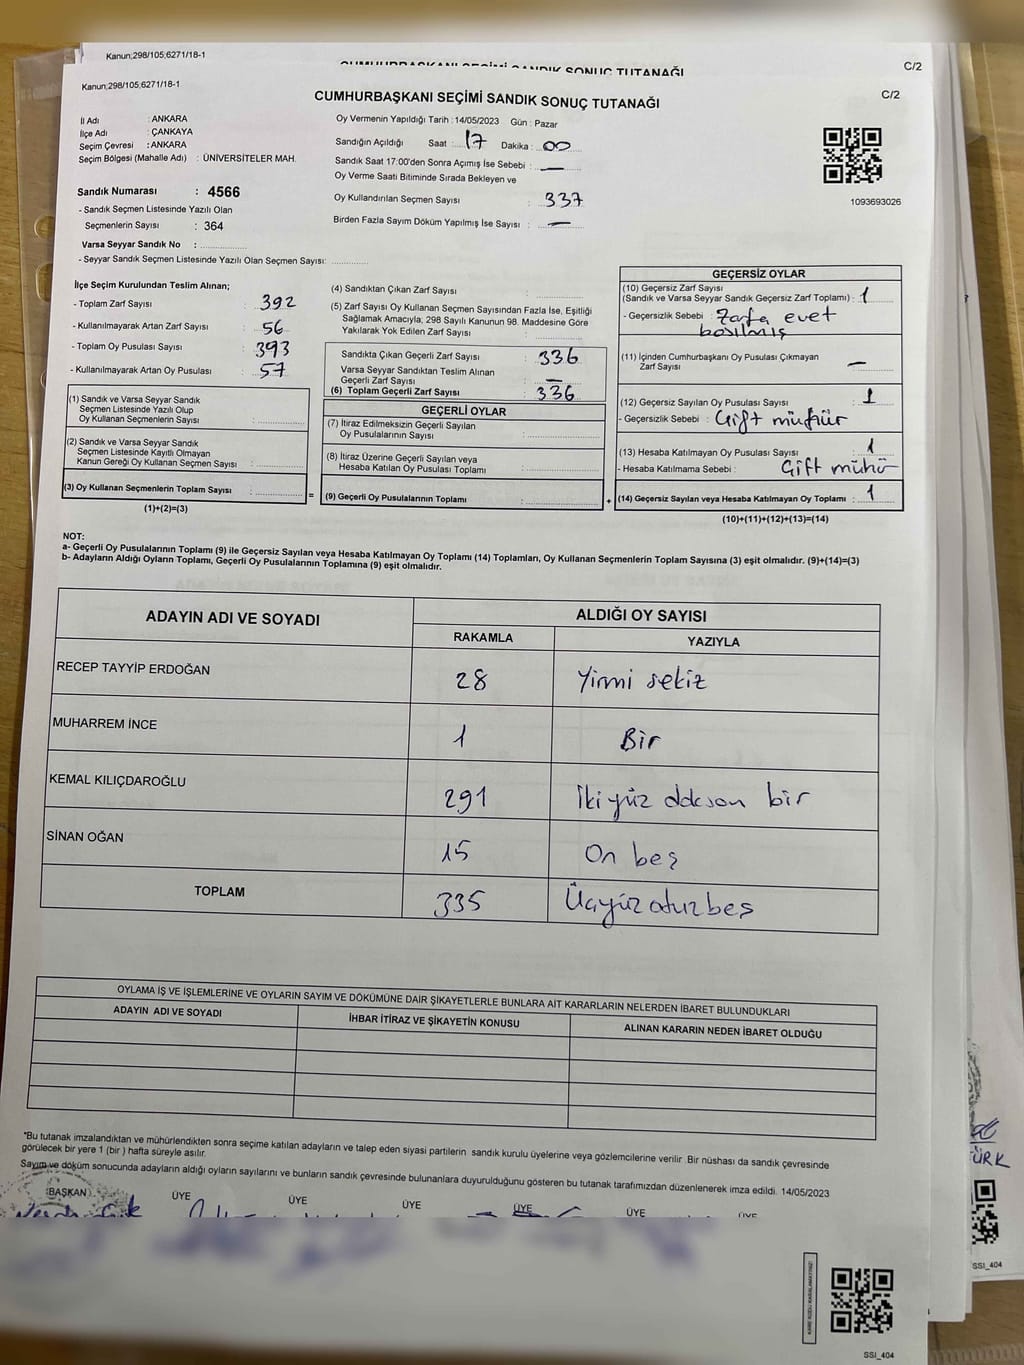 Kanun;298/105;6271/18-1
CUMHURBAŞKANI SEÇİMİ SANDIK SONUÇ TUTANAĞI
C/2
Kanun;298/105;6271/18-1
CUMHURBAŞKANI SEÇİMİ SANDIK SONUÇ TUTANAĞI
C/2
İl Adı : ANKARA
İlçe Adı : ÇANKAYA
Seçim Çevresi : ANKARA
Seçim Bölgesi (Mahalle Adı) : ÜNİVERSİTELER MAH.
Sandık Numarası : 4566
- Sandık Seçmen Listesinde Yazılı Olan
Seçmenlerin Sayısı : 364
Varsa Seyyar Sandık No :
- Seyyar Sandık Seçmen Listesinde Yazılı Olan Seçmen Sayısı:
Oy Vermenin Yapıldığı Tarih : 14/05/2023 Gün : Pazar
Sandığın Açıldığı Saat : 17 Dakika : 00
Sandık Saat 17:00'den Sonra Açımış İse Sebebi : —
Oy Verme Saati Bitiminde Sırada Bekleyen ve
Oy Kullandırılan Seçmen Sayısı : 337
Birden Fazla Sayım Döküm Yapılmış İse Sayısı : —
1093693026
İlçe Seçim Kurulundan Teslim Alınan;
- Toplam Zarf Sayısı : 392
- Kullanılmayarak Artan Zarf Sayısı : 56
- Toplam Oy Pusulası Sayısı : 393
- Kullanılmayarak Artan Oy Pusulası : 57
(1) Sandık ve Varsa Seyyar Sandık
Seçmen Listesinde Yazılı Olup
Oy Kullanan Seçmenlerin Sayısı :
(2) Sandık ve Varsa Seyyar Sandık
Seçmen Listesinde Kayıtlı Olmayan
Kanun Gereği Oy Kullanan Seçmen Sayısı :
(3) Oy Kullanan Seçmenlerin Toplam Sayısı :
(1)+(2)=(3)
=
(4) Sandıktan Çıkan Zarf Sayısı :
(5) Zarf Sayısı Oy Kullanan Seçmen Sayısından Fazla İse, Eşitliği
Sağlamak Amacıyla, 298 Sayılı Kanunun 98. Maddesine Göre
Yakılarak Yok Edilen Zarf Sayısı :
Sandıkta Çıkan Geçerli Zarf Sayısı : 336
Varsa Seyyar Sandıktan Teslim Alınan
Geçerli Zarf Sayısı : —
(6) Toplam Geçerli Zarf Sayısı : 336
GEÇERLİ OYLAR
(7) İtiraz Edilmeksizin Geçerli Sayılan
Oy Pusulalarının Sayısı :
(8) İtiraz Üzerine Geçerli Sayılan veya
Hesaba Katılan Oy Pusulası Toplamı :
(9) Geçerli Oy Pusulalarının Toplamı :
+
GEÇERSİZ OYLAR
(10) Geçersiz Zarf Sayısı
(Sandık ve Varsa Seyyar Sandık Geçersiz Zarf Toplamı) : 1
- Geçersizlik Sebebi : Zarfa evet
basılmış
(11) İçinden Cumhurbaşkanı Oy Pusulası Çıkmayan
Zarf Sayısı : —
(12) Geçersiz Sayılan Oy Pusulası Sayısı : 1
- Geçersizlik Sebebi : Çift mühür
(13) Hesaba Katılmayan Oy Pusulası Sayısı : 1
- Hesaba Katılmama Sebebi : Çift mühü
(14) Geçersiz Sayılan veya Hesaba Katılmayan Oy Toplamı : 1
(10)+(11)+(12)+(13)=(14)
NOT:
a- Geçerli Oy Pusulalarının Toplamı (9) ile Geçersiz Sayılan veya Hesaba Katılmayan Oy Toplamı (14) Toplamları, Oy Kullanan Seçmenlerin Toplam Sayısına (3) eşit olmalıdır. (9)+(14)=(3)
b- Adayların Aldığı Oyların Toplamı, Geçerli Oy Pusulalarının Toplamına (9) eşit olmalıdır.
ADAYIN ADI VE SOYADI
ALDIĞI OY SAYISI
RAKAMLA YAZIYLA
RECEP TAYYİP ERDOĞAN 28 Yirmi sekiz
MUHARREM İNCE 1 Bir
KEMAL KILIÇDAROĞLU 291 İkiyüz doksan bir
SİNAN OĞAN 15 On beş
TOPLAM 335 Üçyüz otuz beş
OYLAMA İŞ VE İŞLEMLERİNE VE OYLARIN SAYIM VE DÖKÜMÜNE DAİR ŞİKAYETLERLE BUNLARA AİT KARARLARIN NELERDEN İBARET BULUNDUKLARI
ADAYIN ADI VE SOYADI İHBAR İTİRAZ VE ŞİKAYETİN KONUSU ALINAN KARARIN NEDEN İBARET OLDUĞU
*Bu tutanak imzalandıktan ve mühürlendikten sonra seçime katılan adayların ve talep eden siyasi partilerin sandık kurulu üyelerine veya gözlemcilerine verilir. Bir nüshası da sandık çevresinde
görülecek bir yere 1 (bir ) hafta süreyle asılır.
Sayım ve döküm sonucunda adayların aldığı oyların sayılarını ve bunların sandık çevresinde bulunanlara duyurulduğunu gösteren bu tutanak tarafımızdan düzenlenerek imza edildi. 14/05/2023
BAŞKAN ÜYE ÜYE ÜYE ÜYE ÜYE ÜYE
ÜRK
SSI_404
SSI_404